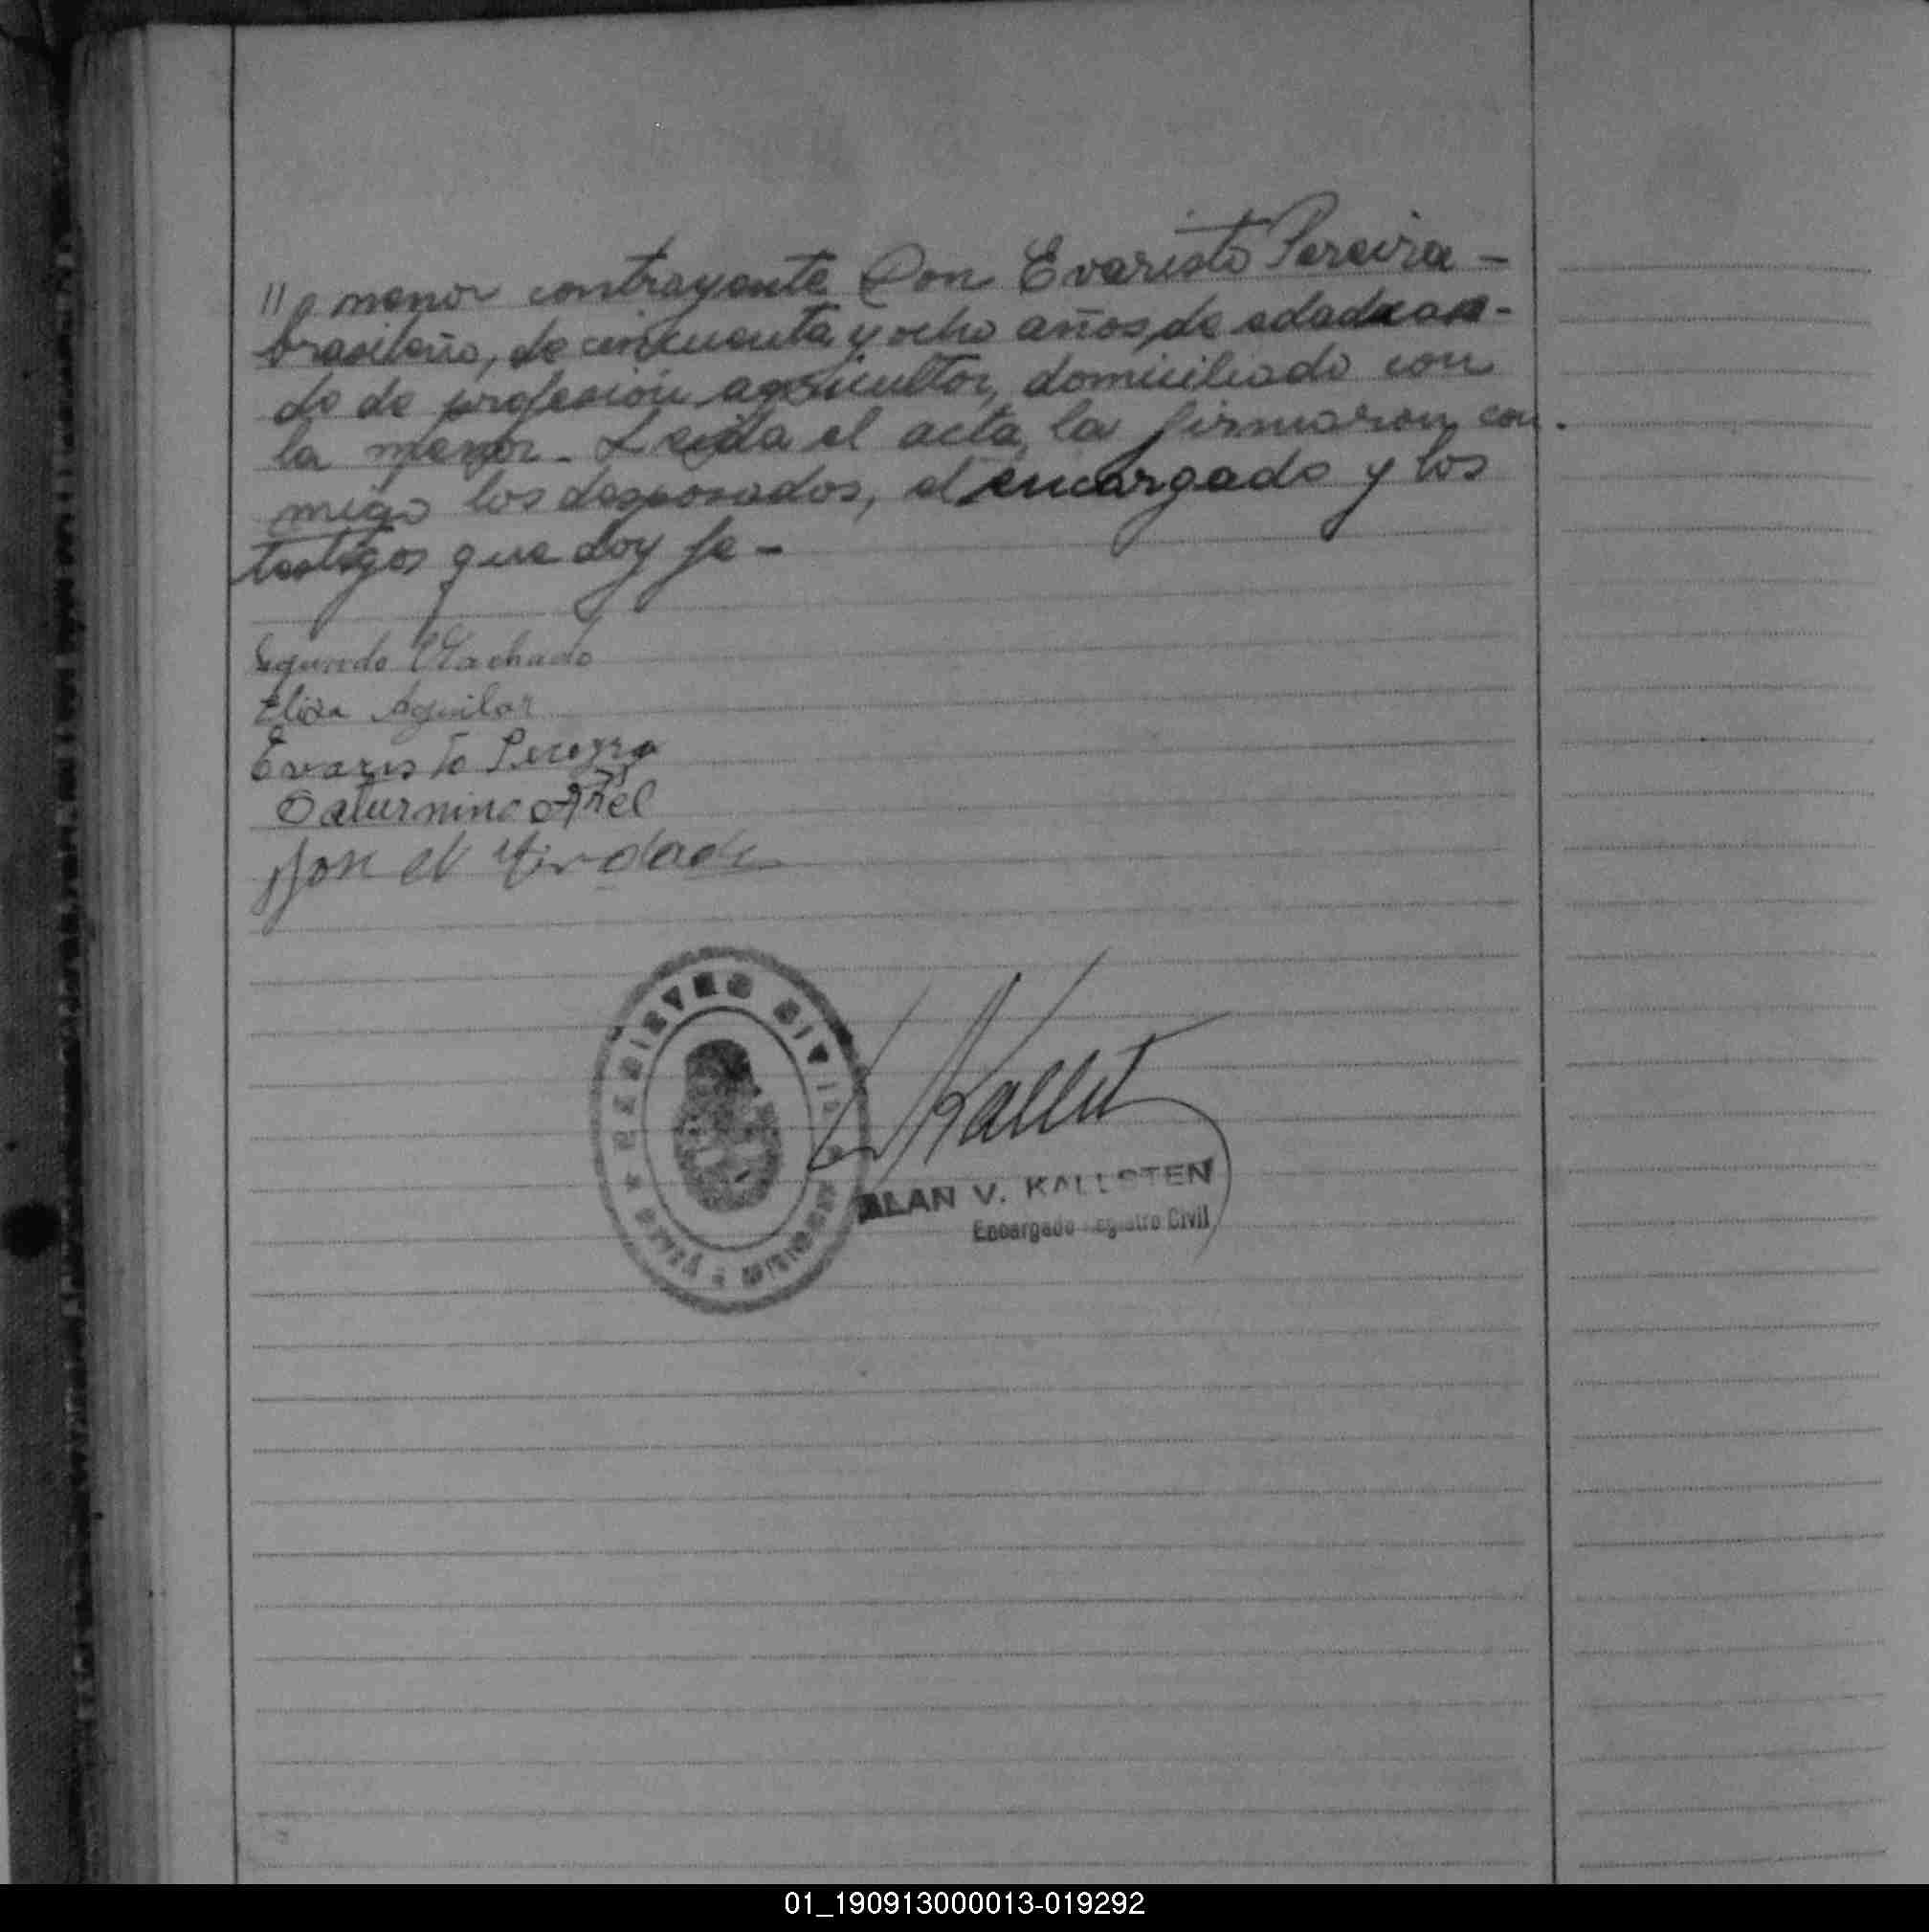 " a menor contrayente Don Evaristo Pereira -
brasileño, de cincuenta y ocho años de edad casa-
do de profesión agricultor, domiciliado con
la menor. Leida el acta, la firmaron con.
migo los desposados, el encargado y los
testigos que doy fe -
Segundo Machado
Eliza Aguilar
Evaristo Pereyra
Saturnino
REGISTRO CIVIL
MISIONES
ALAN V. KALLSTEN
Encargado Registro Civil
01_190913000013-019292